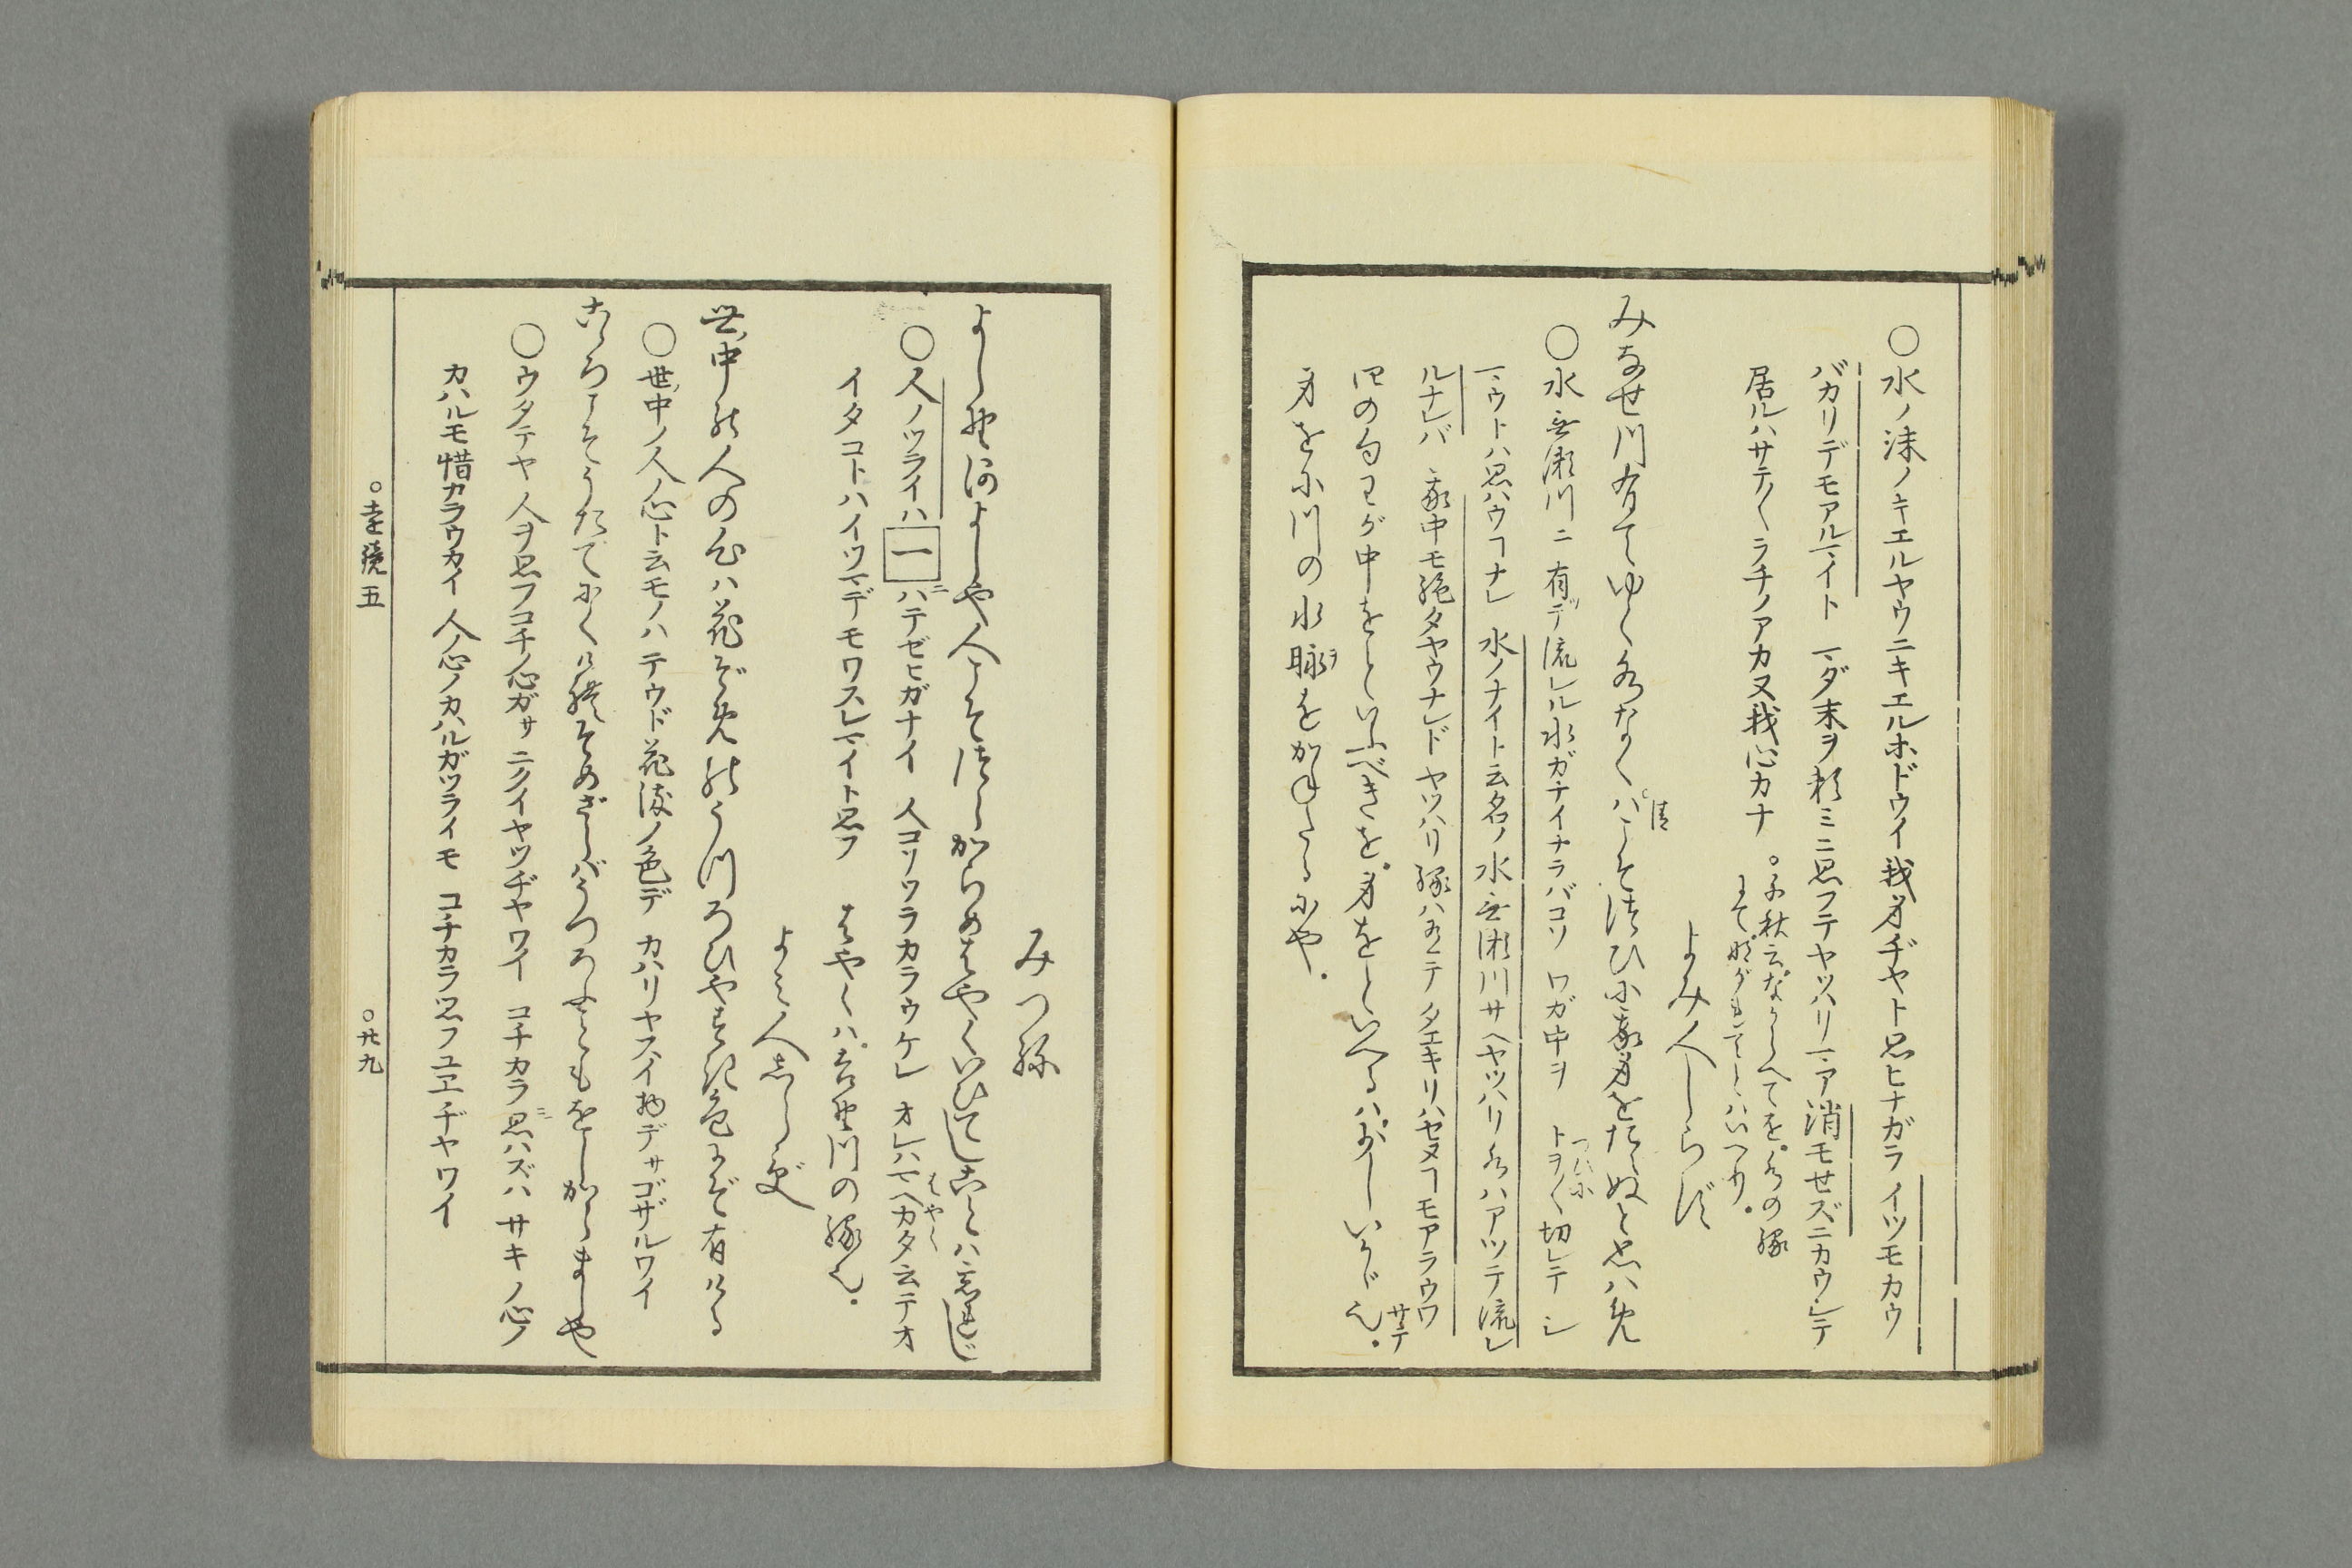 ○水ノ沫ノキエルヤウニキエルホドウイ我身ヂヤト思ヒナガラ イツモカウ
バカリデモアルマイト マダ末ヲ頼ミニ思フテヤッハリマア消モセズニカウシテ
居ルハサテ〳〵ラチノアカヌ我心カナ
○千秋云ながらへてを。水の縁
よみ人しらず
みなせ川有てゆく水なくハこそつひに我身をたえぬと思ハめ
○水無瀬川ニ 有テ流レル水ガナイナラバコソ ワガ中ヲ トヲ〳〵切レテシ
マウトハ思ハウヿナレ 水ノナイト云名ノ水無瀬川サヘヤッハリ水ハアッテ流レ
ルナレバ 我中モ絶タヤウナレド ヤッハリ縁ハ有テタエキリハセヌヿモアラウワサテ
四の句わが中をといふべきを。身をといへるハ。少しいかゞ也。
身をに川の水脉をかねたるにや。
みつね
よしの河よしや人こそつらからめはやくいひてしことハ忘れじ
○人ノツライハ一ハテゼヒガナイ 人コソツラカラウケレ オレハマヘカタ云テオ
イタコトハイツマデモワスレマイト思フ はやくハ。吉野川の縁也。
よみ人しらず
世中の人の心ハ花ぞめのうつろひやすき色にぞ有ける
○世ノ中ノ人ノ心ト云モノハ テウド花染ノ色デ カハリヤスイ物デサゴザルワイ
こゝろこそうたてにくけれ染ざらバうつろふこともをしからましや
○ウタテヤ 人ヲ思フコチノ心ガサ ニクイヤツヂヤワイ コチカラ思ハズハ サキノ心ノ
カハルモ惜カラウカイ 人ノ心ノカハルガツライモ コチカラ思フユヱヂヤワイ
○遠鏡五
○廿九